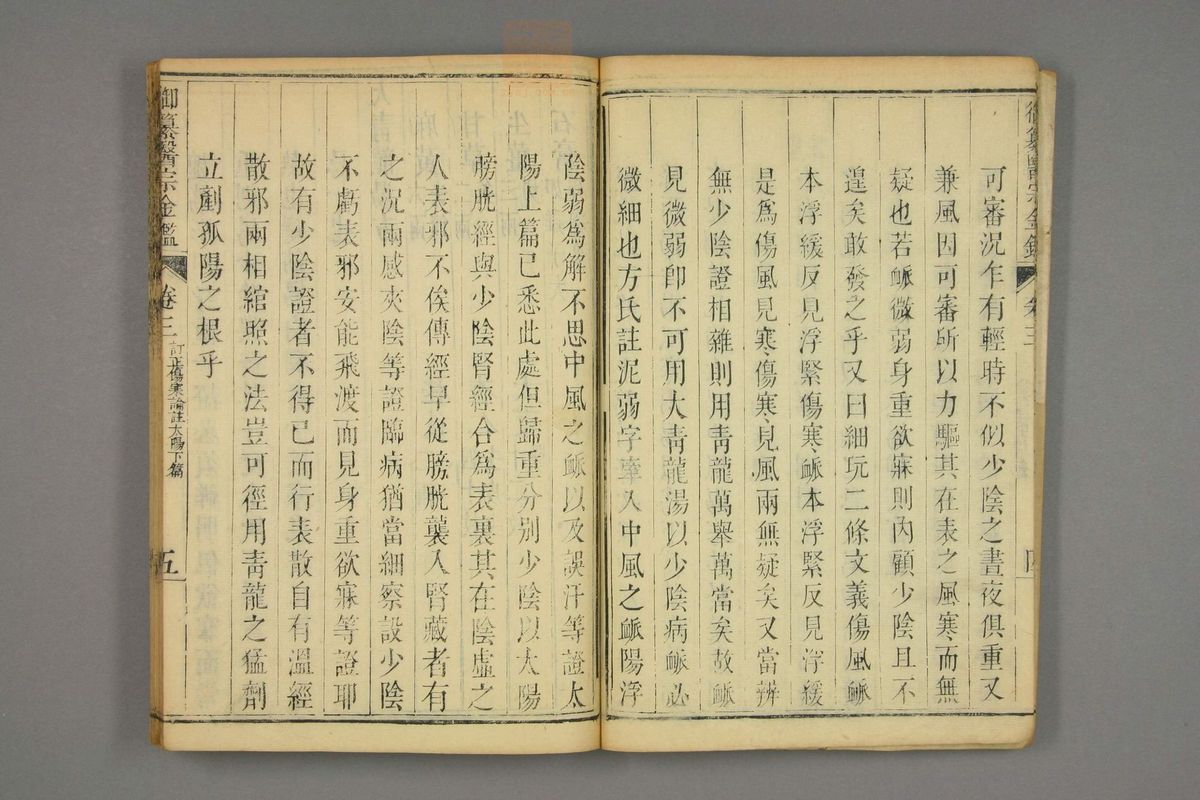 御纂醫宗金鑑 卷三 四
可審況乍有輕時不似少陰之晝夜俱重又
兼風因可審所以力驅其在表之風寒而無
疑也若䘑微弱身重欲寐則內顧少陰且不
遑矣敢發之乎又曰細玩二條文義傷風䘑
本浮緩反見浮緊傷寒䘑本浮緊反見浮緩
是爲傷風見寒傷寒見風兩無疑矣又當辨
無少陰證相雜則用靑龍萬舉萬當矣故䘑
見微弱卽不可用大靑龍湯以少陰病䘑必
微細也方氏註泥弱字牽入中風之䘑陽浮
陰弱爲解不思中風之䘑以及誤汗等證太
陽上篇已悉此處但歸重分別少陰以太陽
膀胱經與少陰腎經合爲表裏其在陰虛之
人表邪不俟傳經早從膀胱襲入腎藏者有
之況兩感夾陰等證臨病猶當細察設少陰
不虧表邪安能飛渡而見身重欲寐等證耶
故有少陰證者不得已而行表散自有溫經
散邪兩相綰照之法豈可徑用靑龍之猛劑
立剷孤陽之根乎
御纂醫宗金鑑 卷三 訂正傷寒論註太陽下篇 五